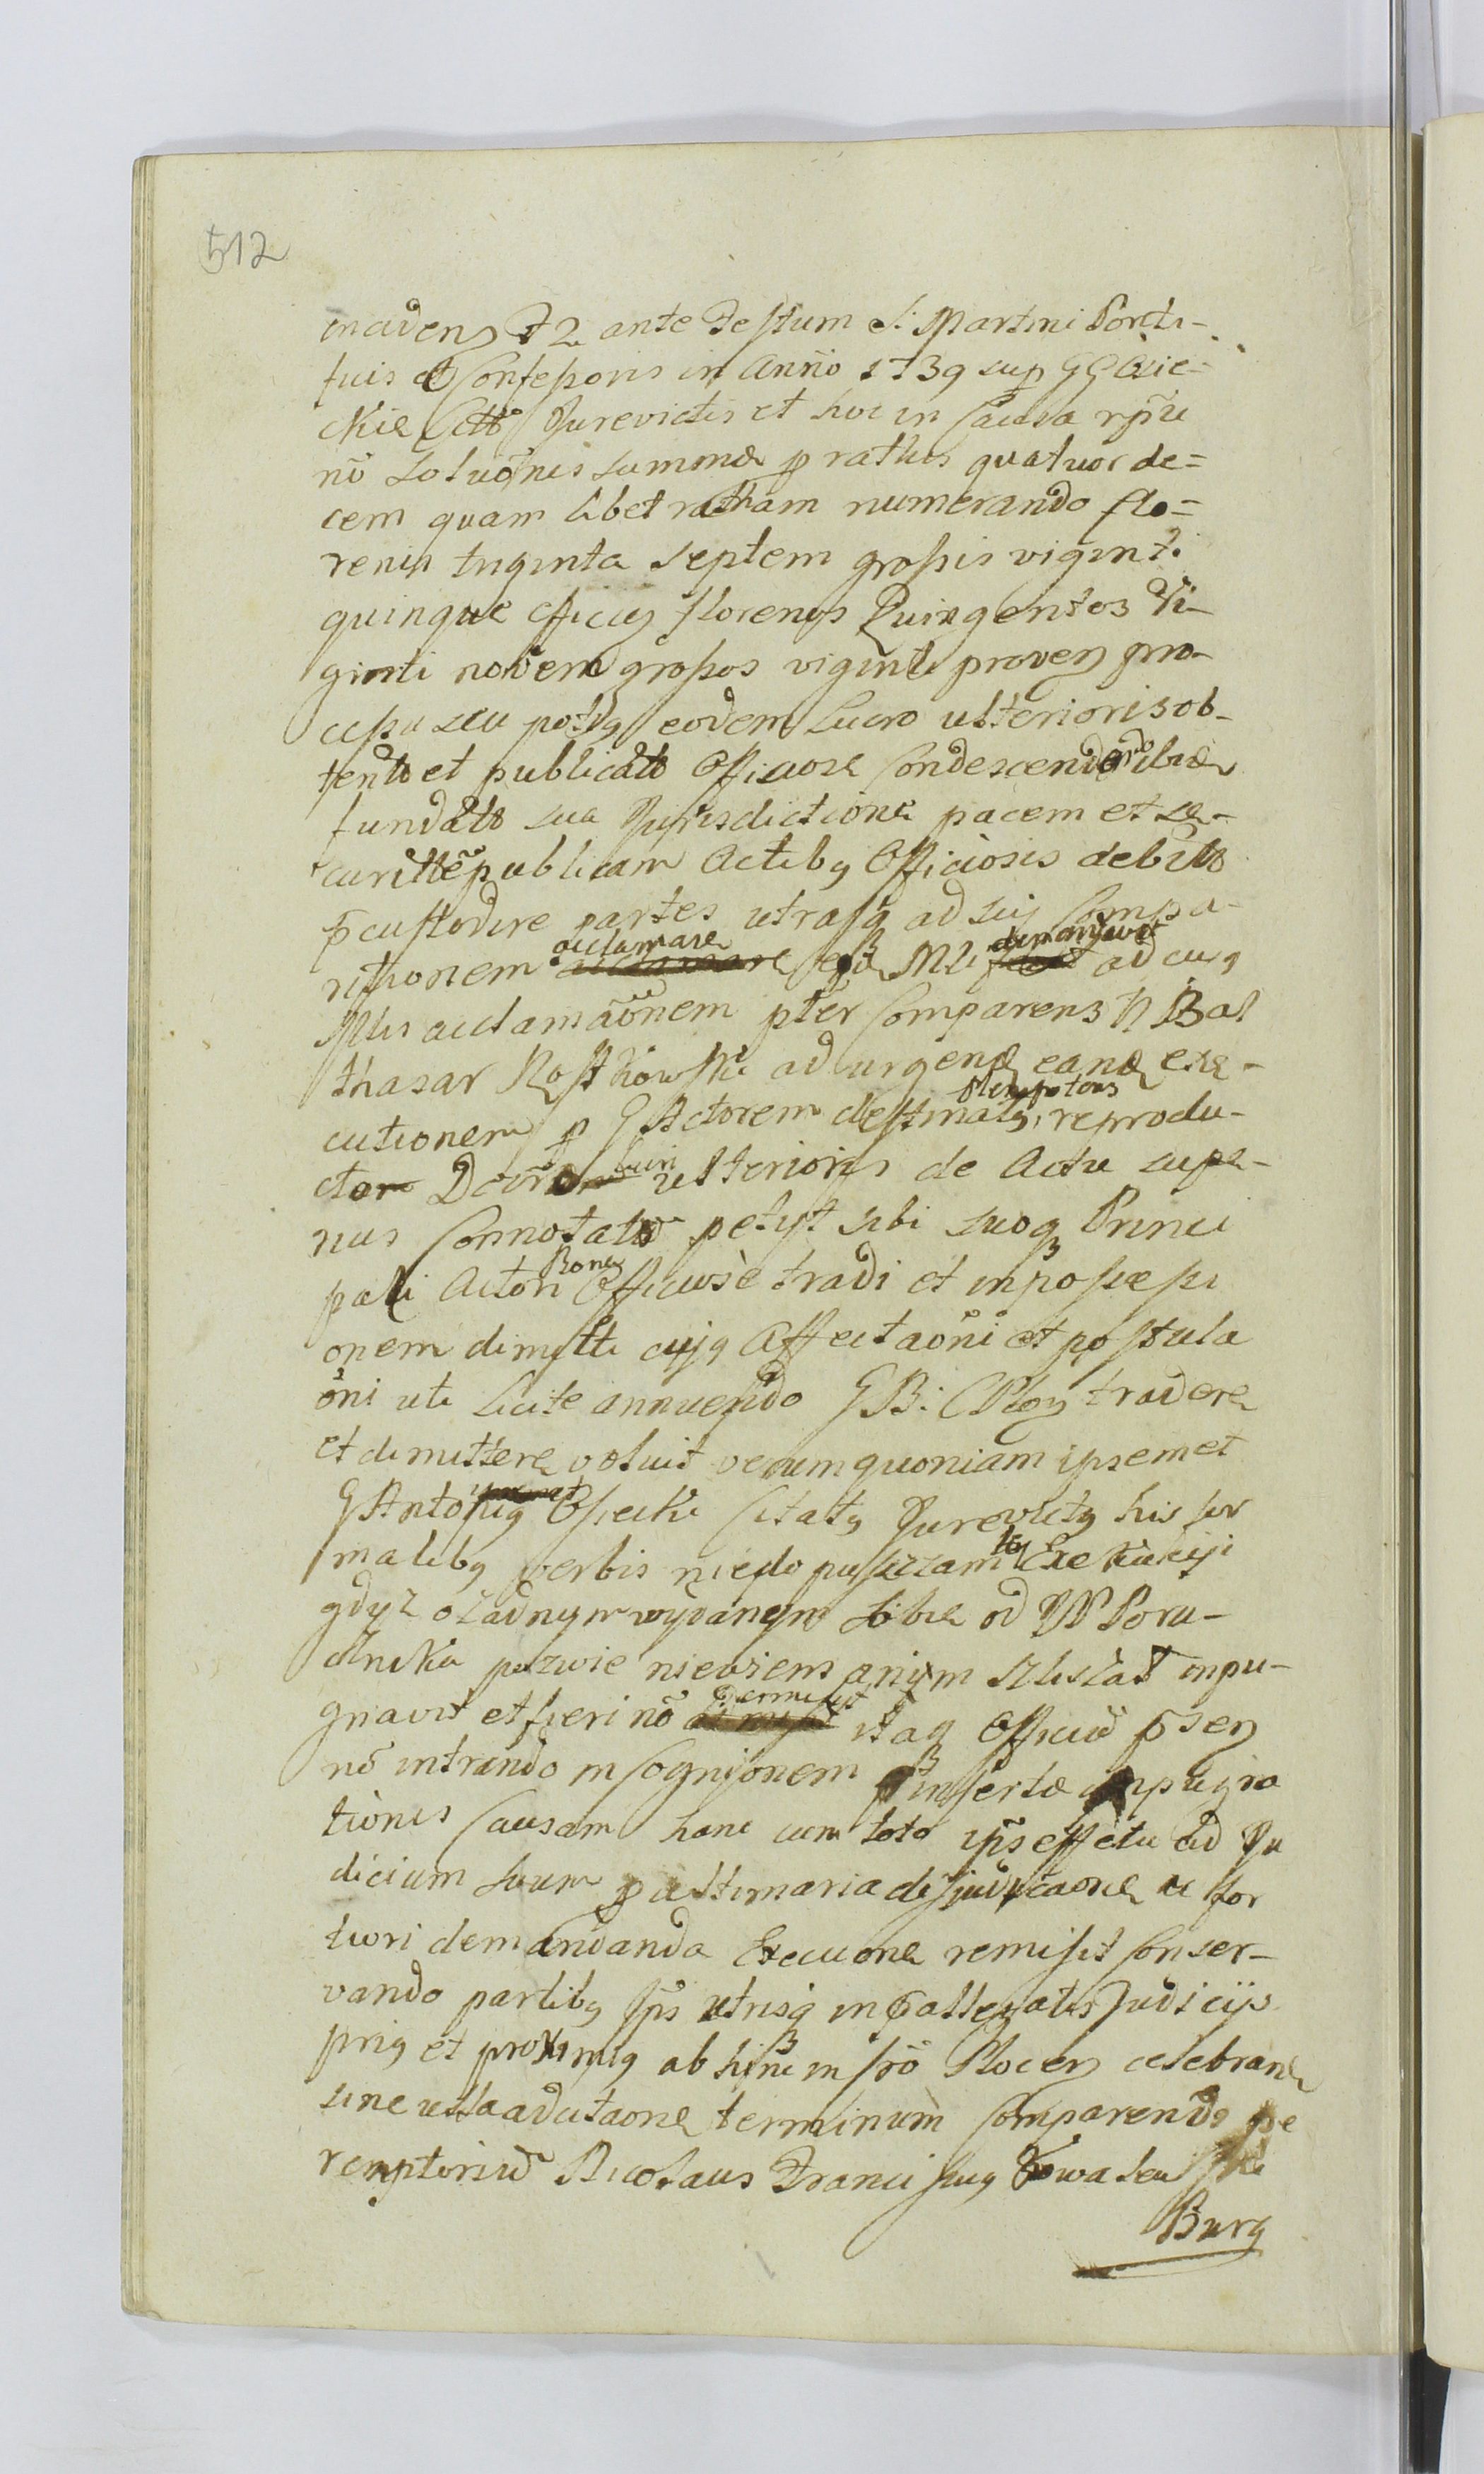 512
ante Festum S: Martini Ponti-
ficis et Confessoris in Anno 1739 sup GG Osie-
ckie Citt Jurevictis et hoc in Causa rõne
nõ solutõnis summæ p rathis quatuor de=
cem quam libet ratham numerando flo=
renis triginta septem grossis viginti
quinque efficien florenos Quingentos Vi-
ginti novem grossos viginti proven pro-
cessu seu potig eodem Lucro ulteriori sob-
tento et publicato Officiose Condescendendo ibidem
fundata sua Jurisdictione pacem et se-
curittẽ publicam Actibg Officiosis debite
p̄custodire partes utrasq ad sui Compa-
ritionem acclamare Mli demandavit ad cujg
Mlis acclamãõnem pter Comparens N Bal
thasar Rostkowski ad urgen eand exe-
cutionem p G Actorem destinatg Plenipotens reprodu-
cto Decr Lucri ulterioris de Actu supe-
rius Connotato petiit sibi suoq Princi
pali Actori Bona Officiosè tradi et in possessi
onem dimitti cujg Affectaõni et postula
õni uti licite annuendo G B: C Plon tradere
et dimittere voluit verum quoniam ipsemet
G Antonig Osiecki Citatg Jurevictg his for
malibg verbis niedopuszczam tey Exekucyi
gdyz o zadnym wydanym sobie od W Poru-
cznika pozwie niewiem anim slislał inpu-
gnavit et fieri nõ permisit itaq Officiũ p̄sen
nõ intrando in Cognitionem inserta inpugna
tionis Causam hanc cum toto ips effectu ad Ju
dicium suum p ultimaria disjudicaone a for
tiori demandanda Execuone remisit Conser-
vando partibg ips utrisq in p̄allegatis Judicijs
prig et proximig ab hinc in frõ Plocen celebran
sine ulla adcitaone terminum Comparendi pe
remptoriũ Nicolaus Franciscug Kowalewski
Burg